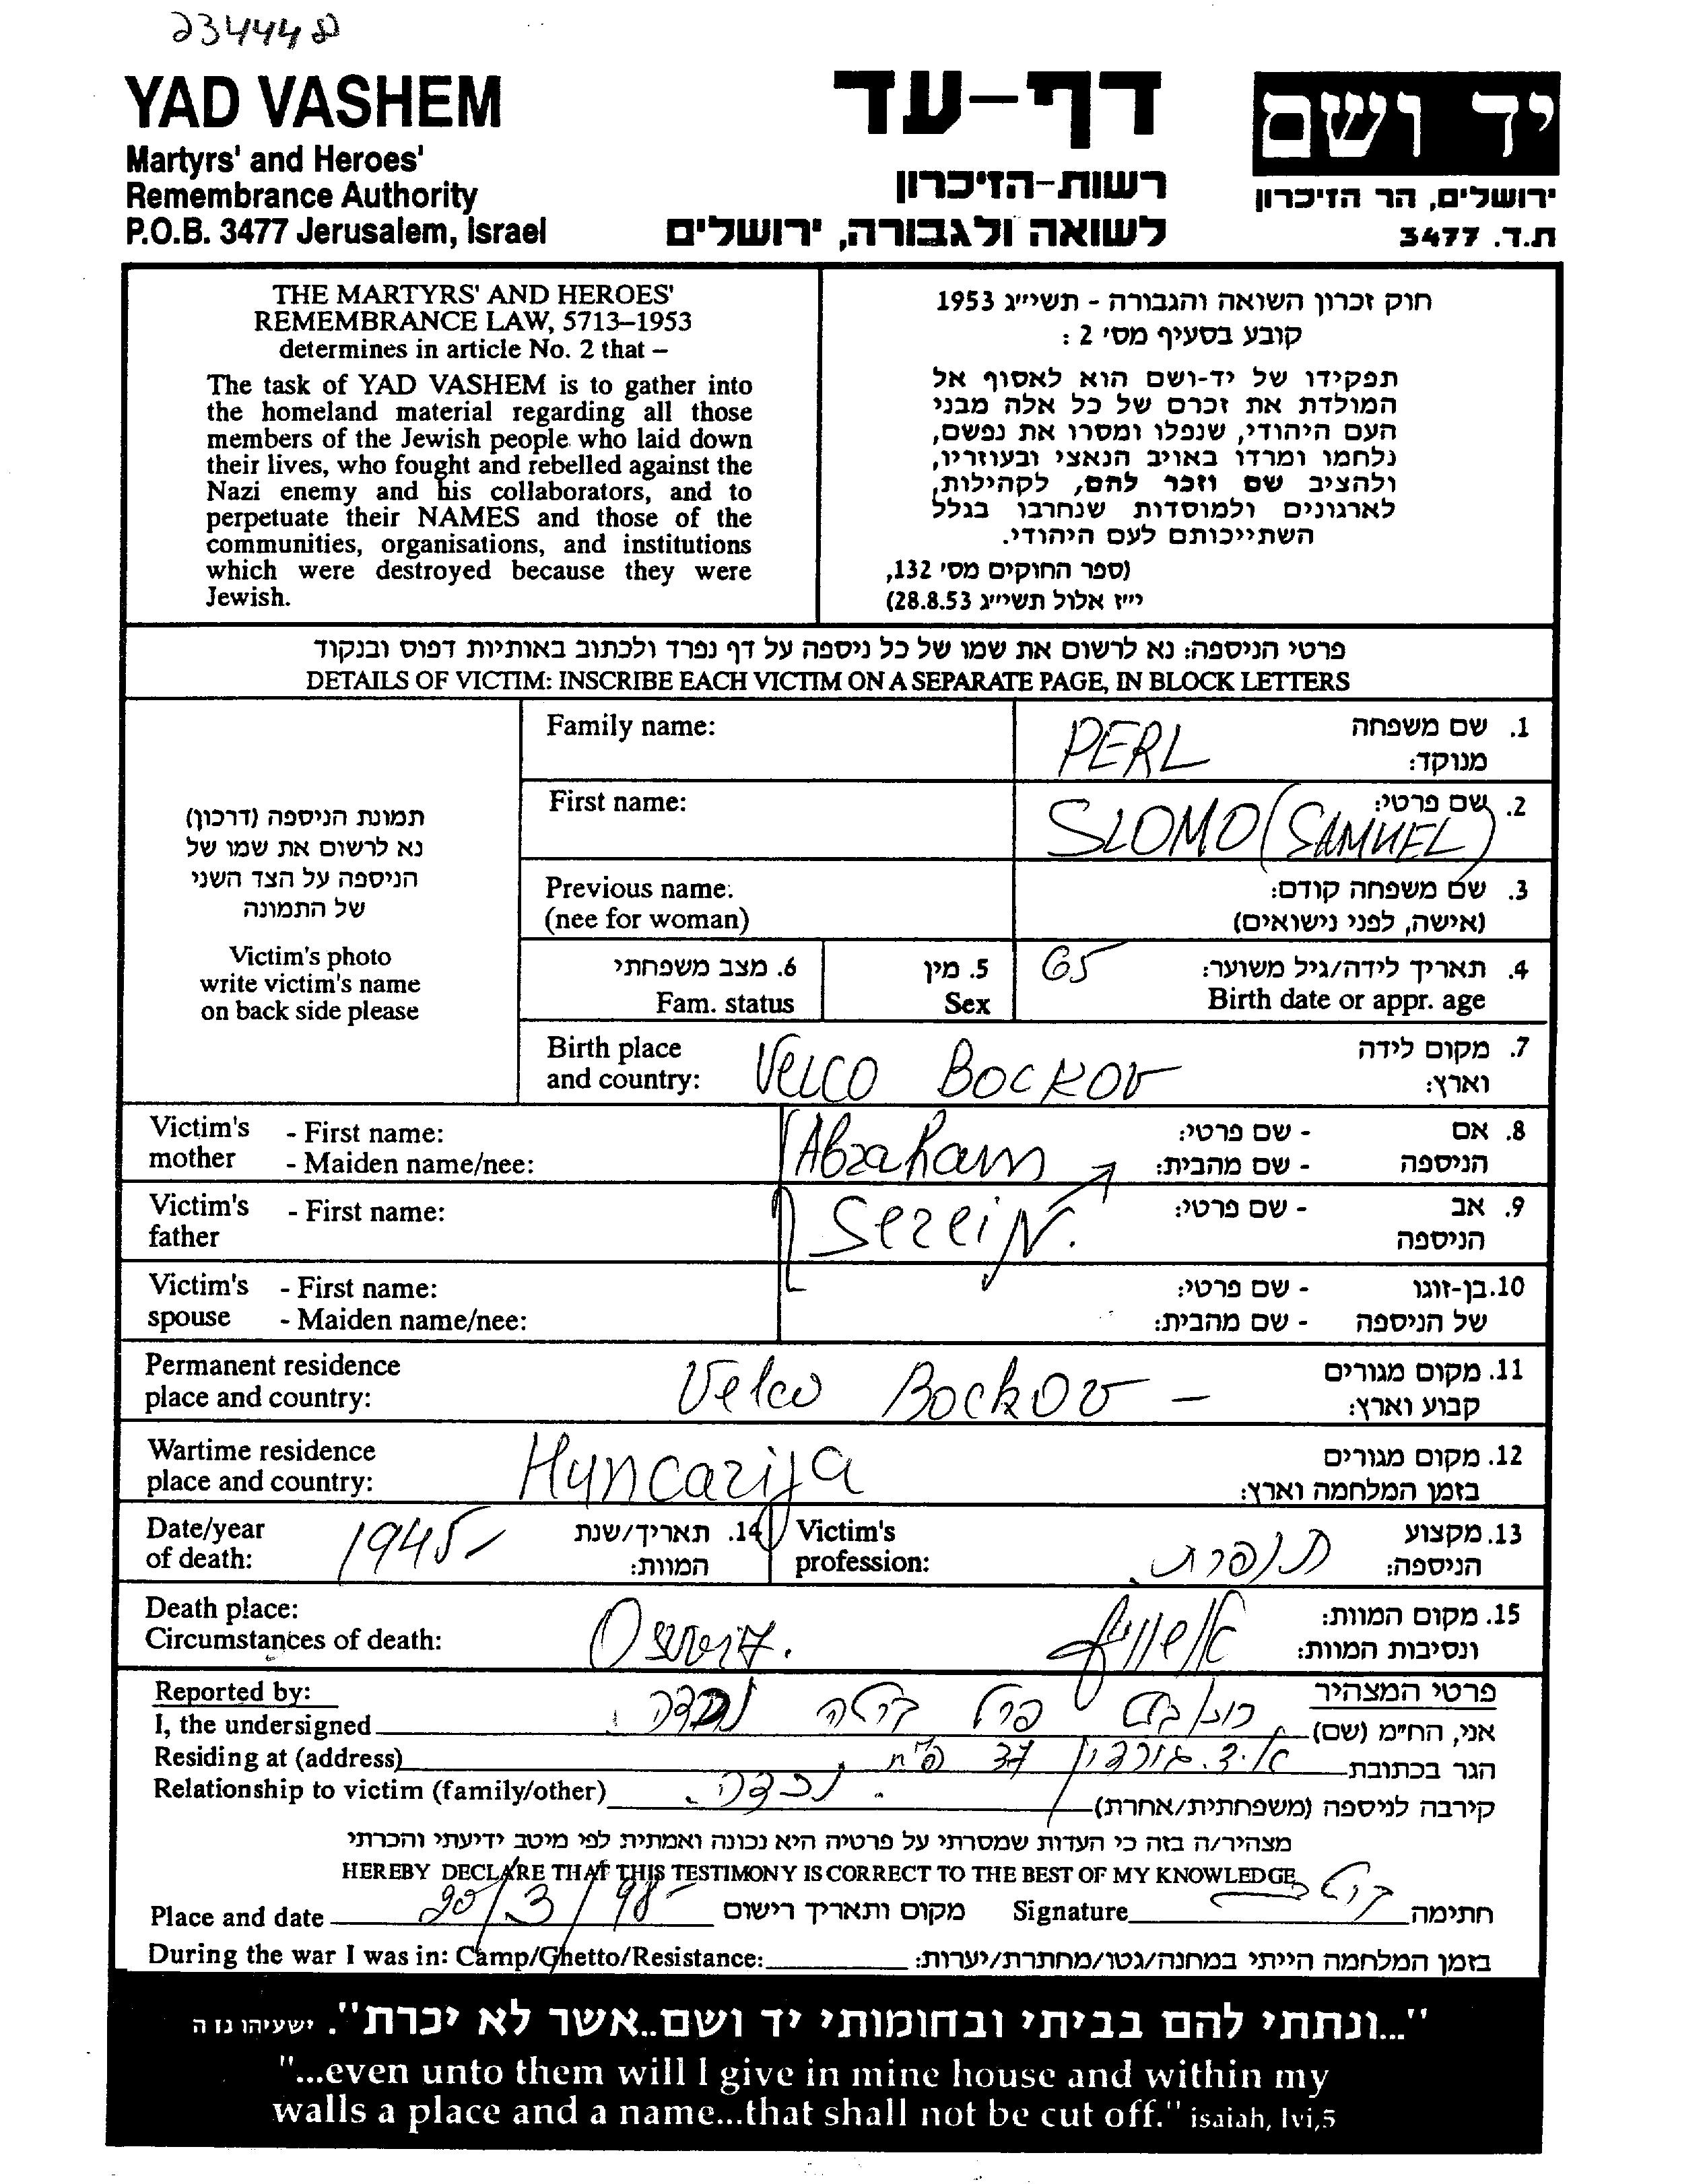 234448
YAD VASHEM
Martyrs' and Heroes'
Remembrance Authority
P.O.B. 3477 Jerusalem, Israel
דף-עד
רשות-הזיכרון
לשואה ולגבורה, ירושלים
יד ושם
ירושלים, הר הזיכרון
ת.ד. 3477
THE MARTYRS' AND HEROES'
REMEMBRANCE LAW, 5713–1953
determines in article No. 2 that –
The task of YAD VASHEM is to gather into
the homeland material regarding all those
members of the Jewish people who laid down
their lives, who fought and rebelled against the
Nazi enemy and his collaborators, and to
perpetuate their NAMES and those of the
communities, organisations, and institutions
which were destroyed because they were
Jewish.
חוק זכרון השואה והגבורה - תשי״ג 1953
קובע בסעיף מס׳ 2 :
תפקידו של יד-ושם הוא לאסוף אל
המולדת את זכרם של כל אלה מבני
העם היהודי, שנפלו ומסרו את נפשם,
נלחמו ומרדו באויב הנאצי ובעוזריו,
ולהציב שם וזכר להם, לקהילות,
לארגונים ולמוסדות שנחרבו בגלל
השתייכותם לעם היהודי.
(ספר החוקים מס׳ 132,
י״ז אלול תשי״ג 28.8.53)
פרטי הניספה: נא לרשום את שמו של כל ניספה על דף נפרד ולכתוב באותיות דפוס ובנקוד
DETAILS OF VICTIM: INSCRIBE EACH VICTIM ON A SEPARATE PAGE, IN BLOCK LETTERS
תמונת הניספה (דרכון)
נא לרשום את שמו של
הניספה על הצד השני
של התמונה
Victim's photo
write victim's name
on back side please
Family name: PERL 1. שם משפחה
מנוקד:
First name: SLOMO (SAMUEL) 2. שם פרטי:
Previous name: 3. שם משפחה קודם:
(nee for woman) (אישה, לפני נישואים)
6. מצב משפחתי 5. מין 65 4. תאריך לידה/גיל משוער:
Fam. status Sex Birth date or appr. age
Birth place Velco Bockov 7. מקום לידה
and country: וארץ:
Victim's - First name: Abraham - שם פרטי: 8. אם
mother - Maiden name/nee: - שם מהבית: הניספה
Victim's - First name: Serein. - שם פרטי: 9. אב
father הניספה
Victim's - First name: - שם פרטי: 10. בן-זוגו
spouse - Maiden name/nee: - שם מהבית: של הניספה
Permanent residence Velco Bockov - 11. מקום מגורים
place and country: קבוע וארץ:
Wartime residence Hyncarija 12. מקום מגורים
place and country: בזמן המלחמה וארץ:
Date/year 1945- 14. תאריך/שנת Victim's תופרת. 13. מקצוע
of death: המוות: profession: הניספה:
Death place: 15. מקום המוות:
Circumstances of death: ונסיבות המוות:
Reported by: פרטי המצהיר
I, the undersigned פרל אני, החי״מ (שם)
Residing at (address) א.ד. גורדון 37 פ״ת הגר בכתובת
Relationship to victim (family/other) נכדה. קירבה לניספה (משפחתית/אחרת)
מצהיר/ה בזה כי העדות שמסרתי על פרטיה היא נכונה ואמתית לפי מיטב ידיעתי והכרתי
HEREBY DECLARE THAT THIS TESTIMONY IS CORRECT TO THE BEST OF MY KNOWLEDGE
Place and date 20/3/98- מקום ותאריך רישום Signature חתימה
During the war I was in: Camp/Ghetto/Resistance: בזמן המלחמה הייתי במחנה/גטו/מחתרת/יערות:
"...ונתתי להם בביתי ובחומותי יד ושם..אשר לא יכרת". ישעיהו נו ה
"...even unto them will I give in mine house and within my
walls a place and a name...that shall not be cut off." isaiah, lvi,5